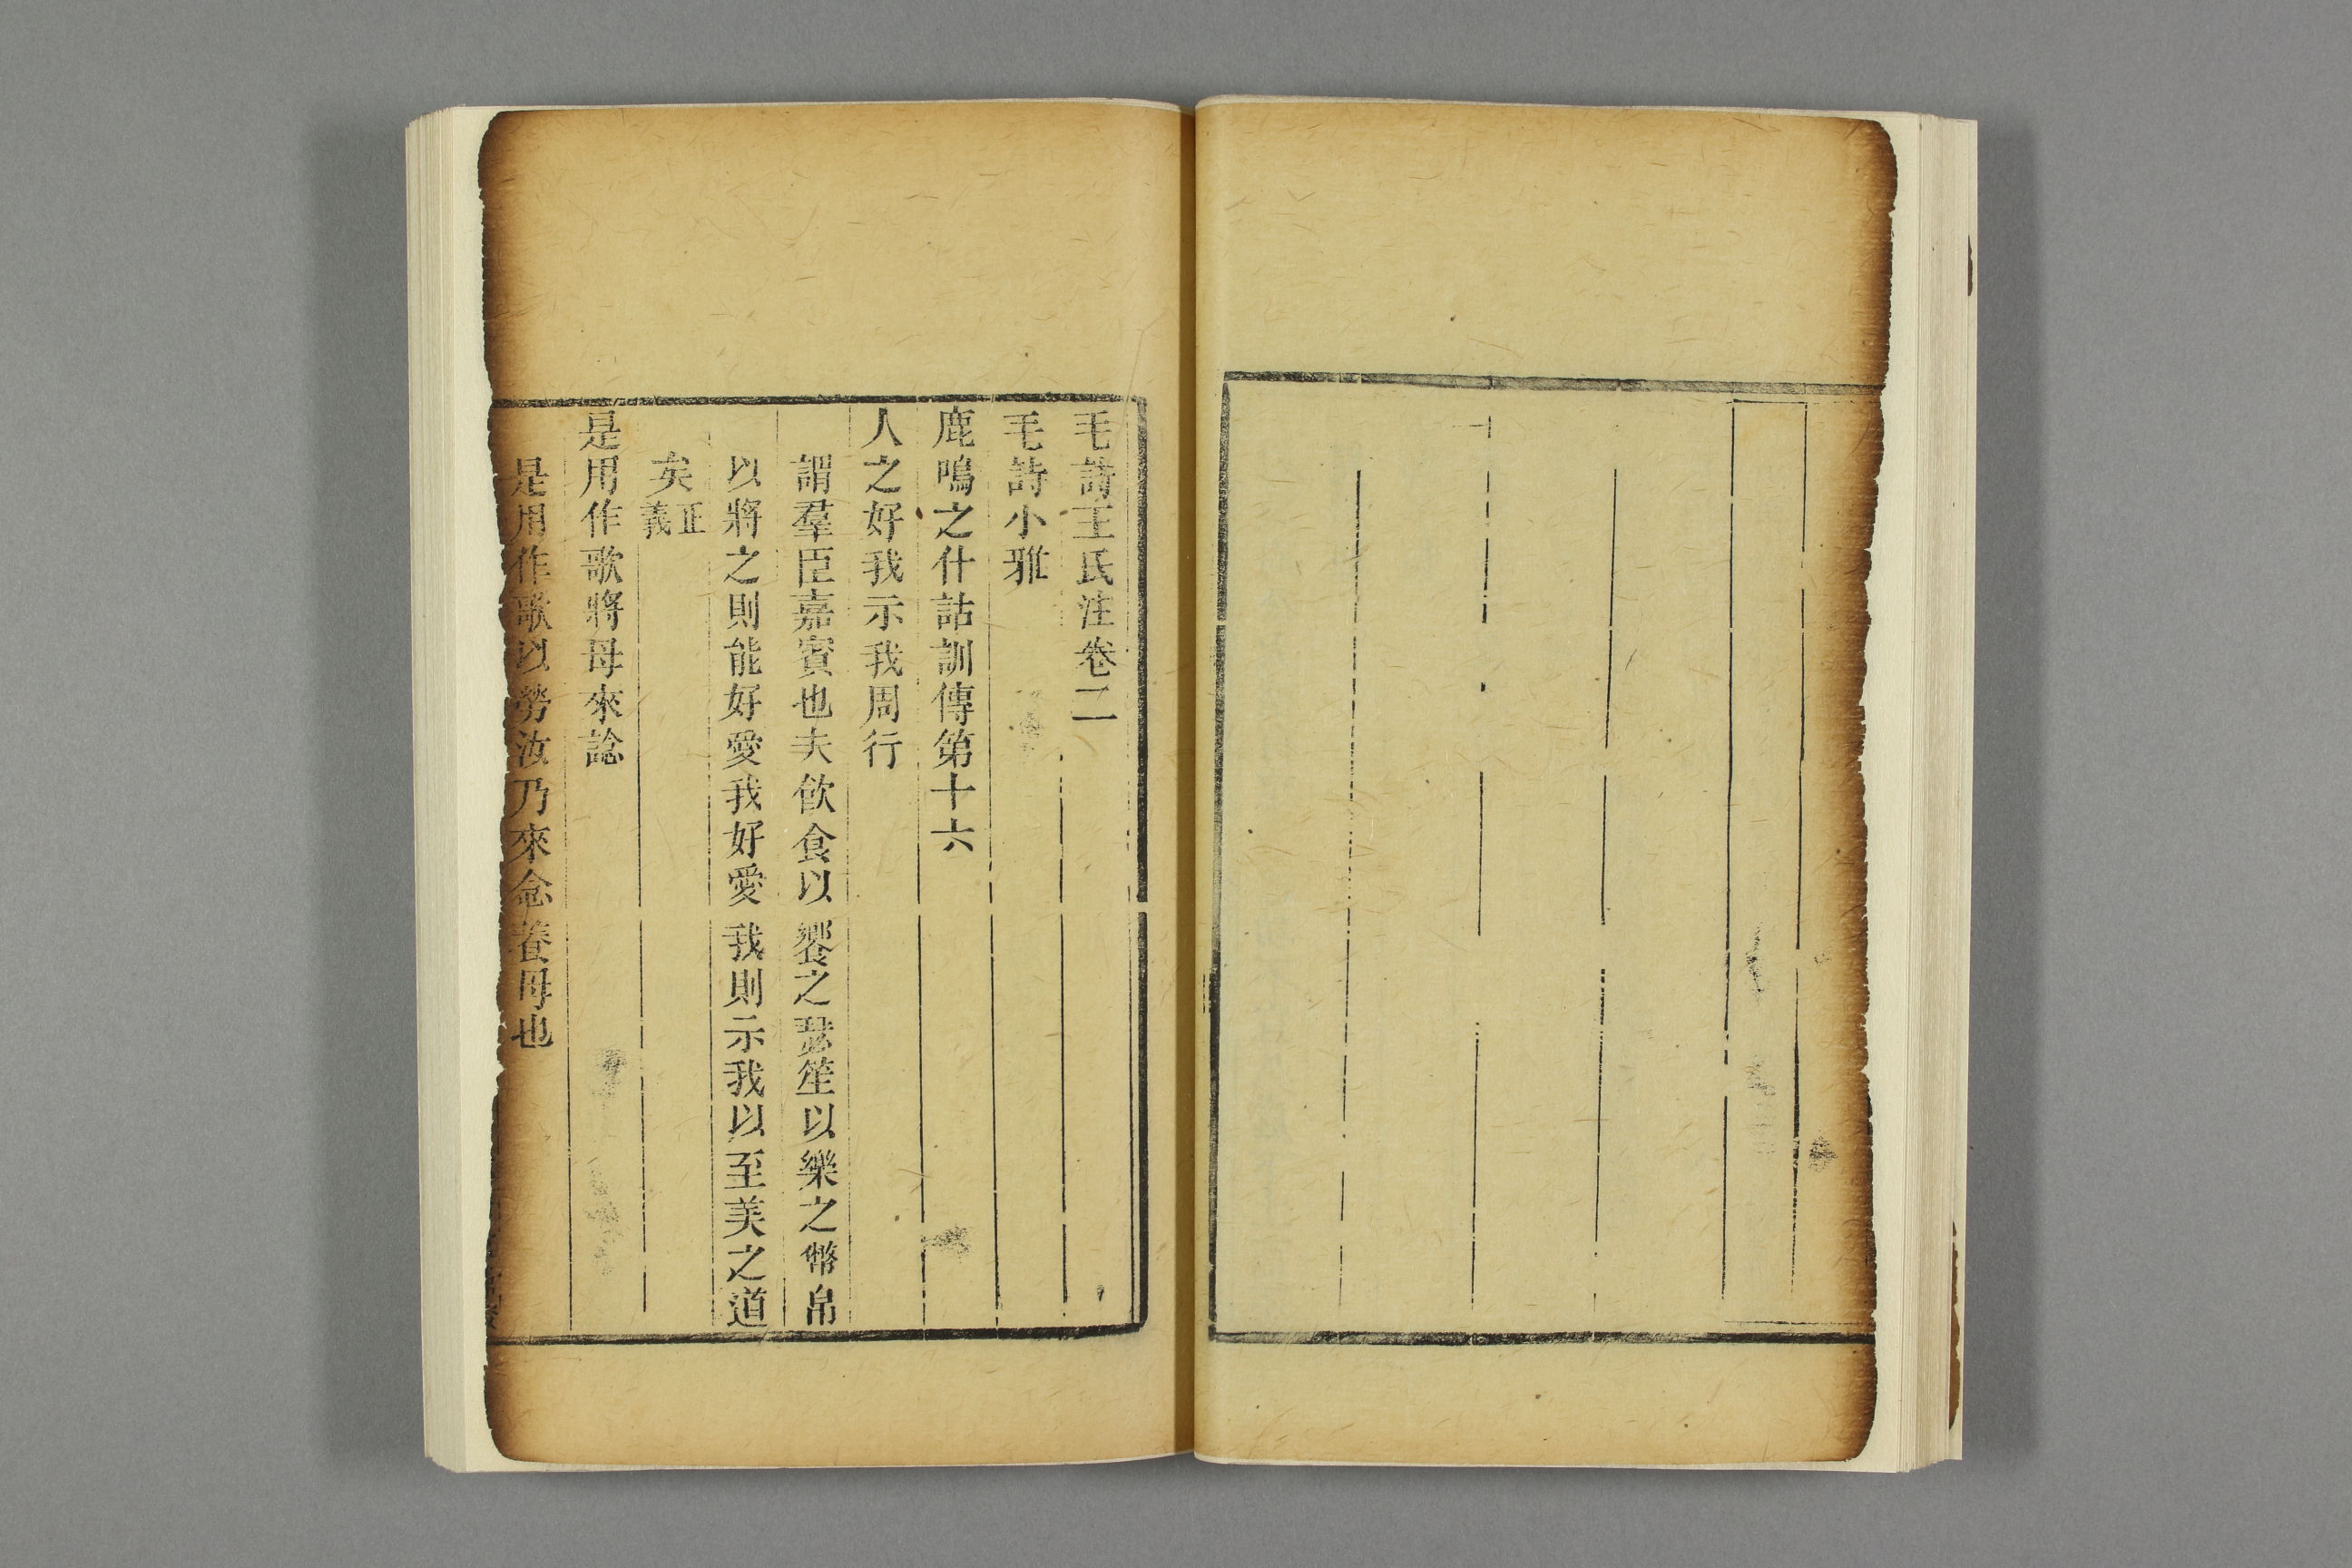 毛詩王氏注卷二
毛詩小雅
鹿鳴之什詁訓傳第十六
人之好我示我周行
謂羣臣嘉賓也夫飲食以饗之瑟笙以樂之幣帛
以將之則能好愛我好愛我則示我以至美之道
矣正義
是用作歌將母來諗
是用作歌以勞汝乃來念養母也